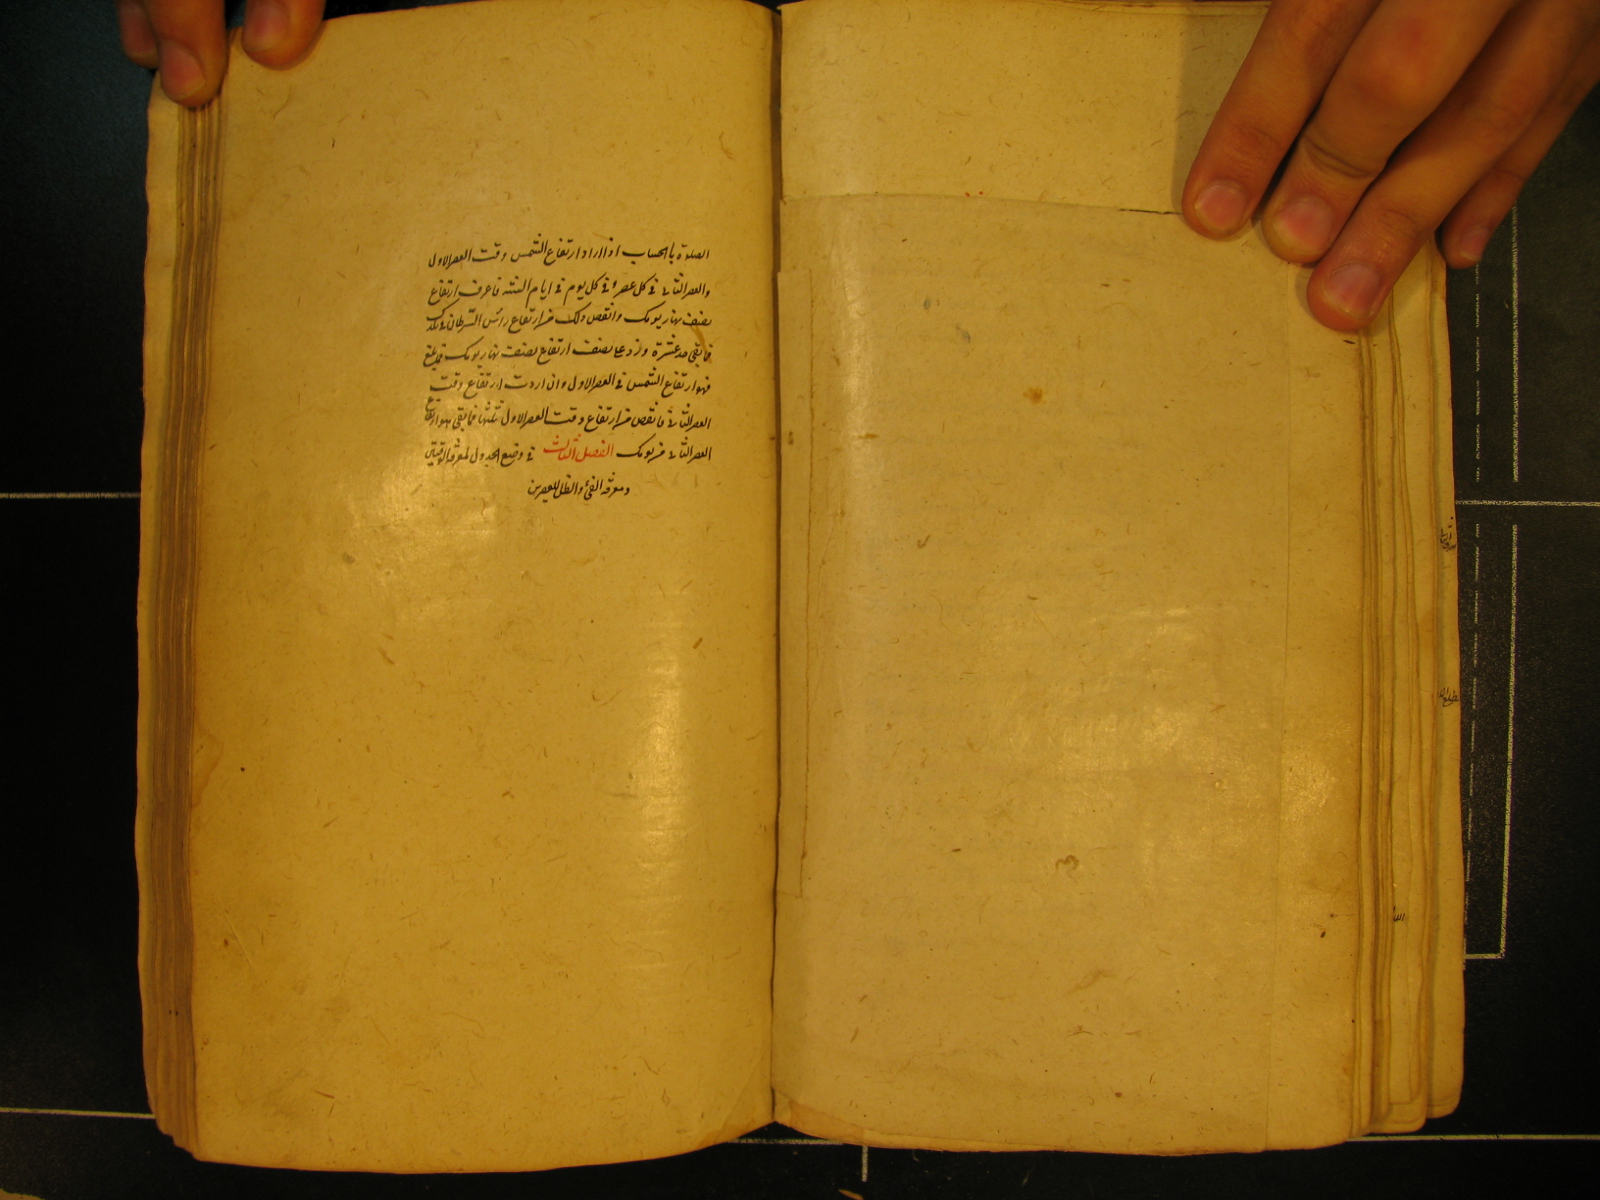 الصلوة بالحساب اذا اراد ارتفاع الشمس وقت العصر الاول
والعصر الثانى فى كل عصر فى كل يوم فى ايام السنة فاعرف ارتفاع
نصف نهار يومك وانقص ذلك من ارتفاع رائس السرطان فى بلدك
فما بقى خذ عشره وزد على نصف ارتفاع نصف نهار يومك فما بلغ
فهو ارتفاع الشمس فى العصر الاول وان اردت ارتفاع وقت
العصر الثانى فانقص من ارتفاع وقت العصر الاول ثلثها فما بقى فهو ارتفاع
العصر الثانى من يومك الفصل الثالث فى وضع الجدول لمعرفة الوقتين
ومعرفة الفئ والظل للعصرين